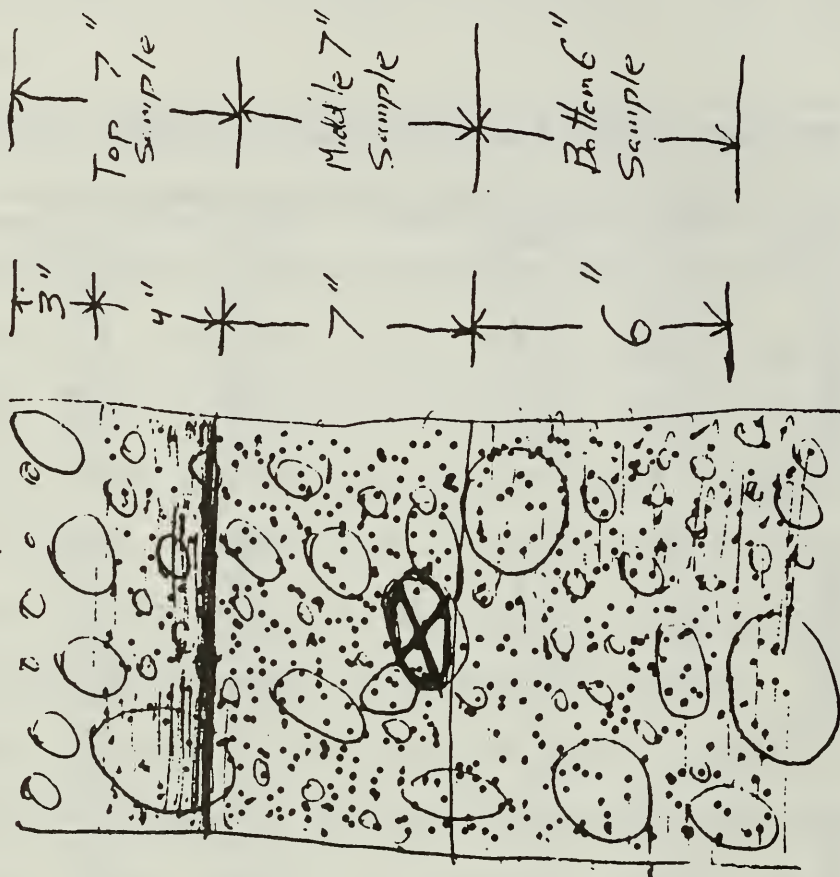 Top 7"
Sample
Middle 7"
Sample
Bottom 6"
Sample
3"
4"
7"
6"